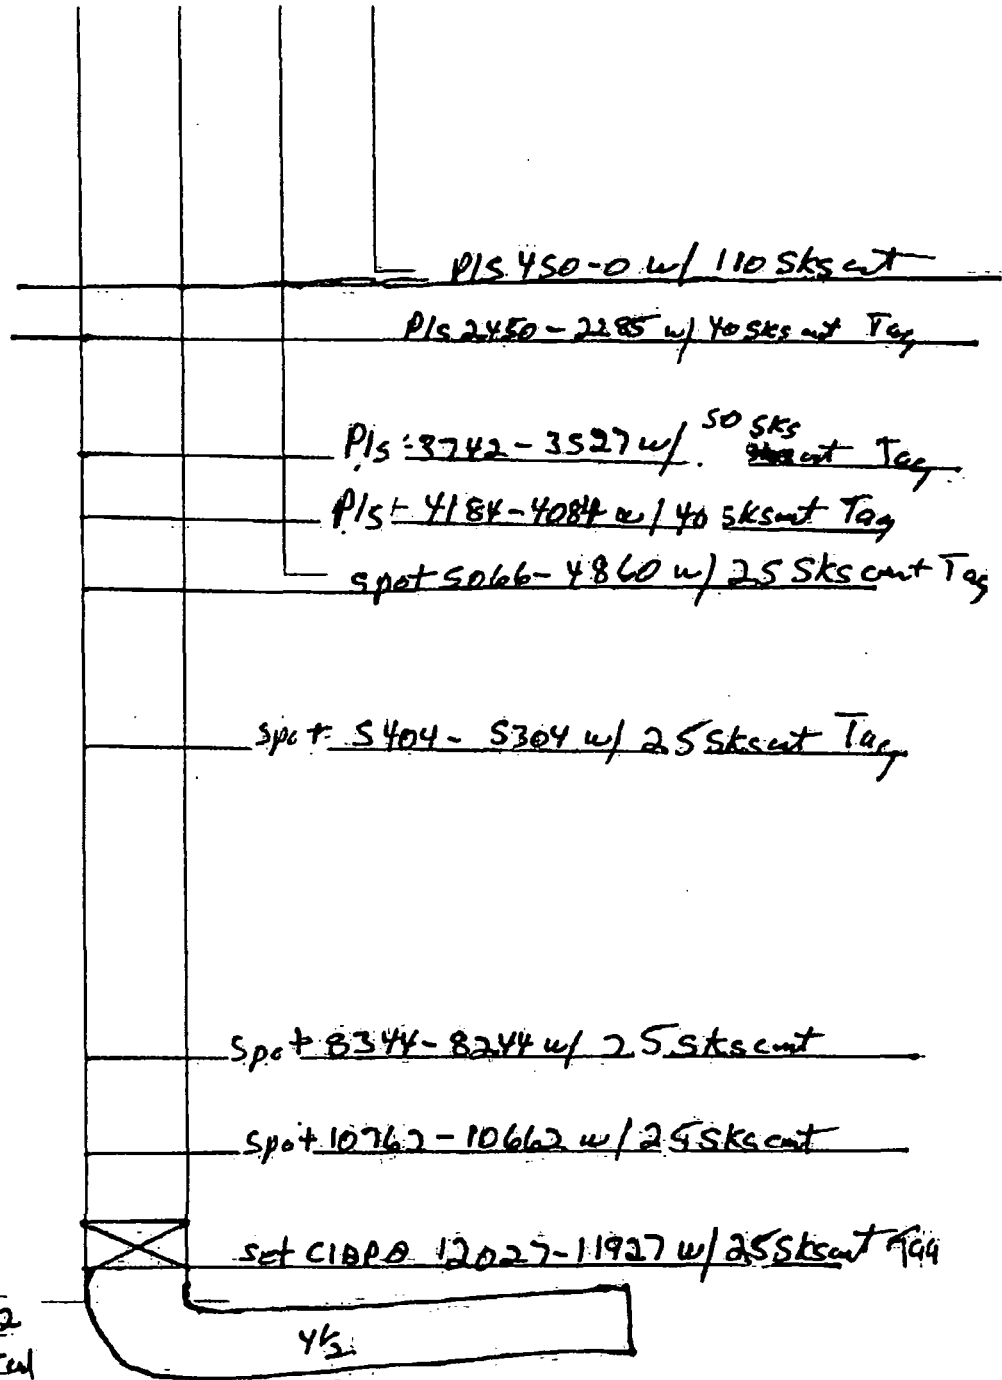 P/s 450-0 w/ 110 sks cmt
P/s 2450-2285 w/ 40 sks cmt Tag
P/s 3742-3527 w/ 50 sks cmt Tag
P/s 4184-4084 w/ 40 sks cmt Tag
spot 5066-4860 w/ 25 sks cmt Tag
spot 5404-5304 w/ 25 sks cmt Tag
Spot 8344-8244 w/ 25 sks cmt
Spot 10762-10662 w/ 25 sks cmt
set CIBP@ 12027-11927 w/ 25 sks cmt Tag
4½